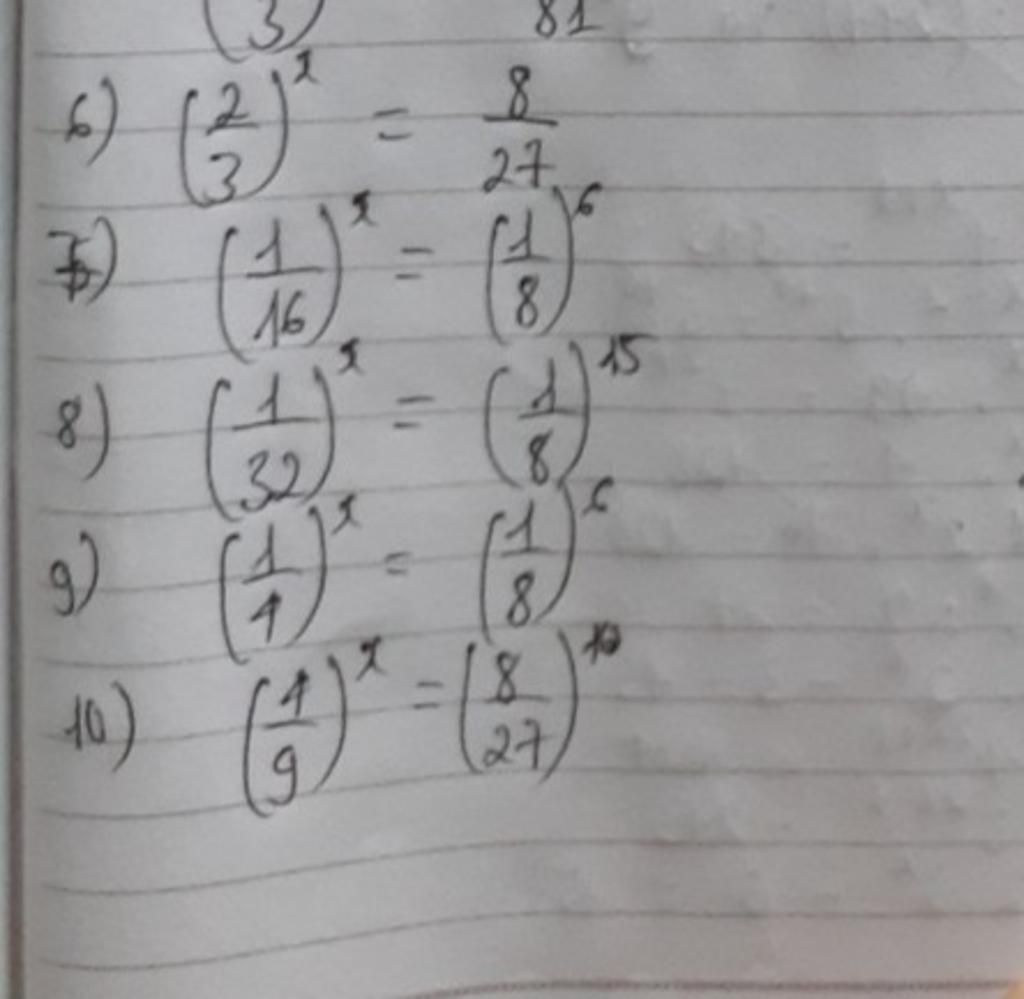 (  /3)    81
6) (2/3)^x = 8/27
7) (1/16)^x = (1/8)^6
8) (1/32)^x = (1/8)^15
9) (1/4)^x = (1/8)^6
10) (4/9)^x = (8/27)^10